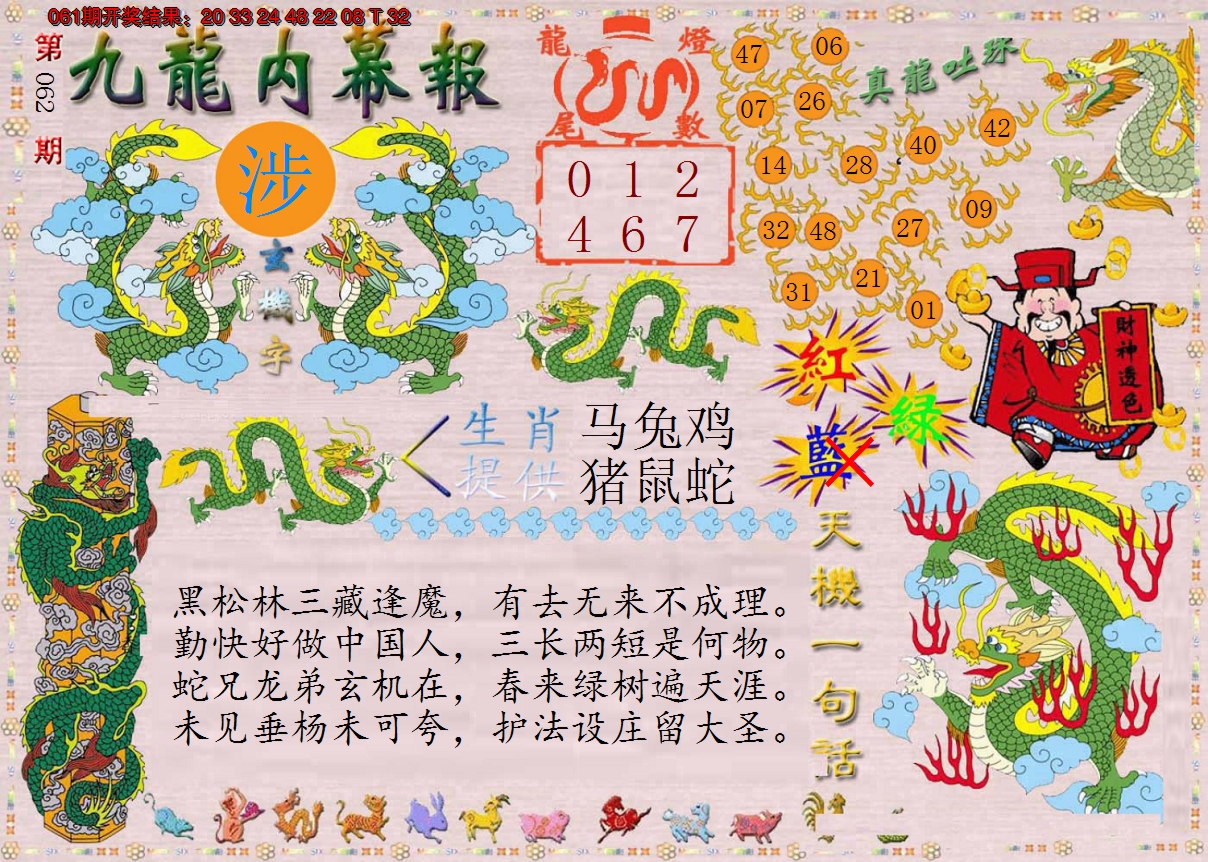 061期开奖结果：20 33 24 48 22 08 T 32
第062期
九龍内幕報
涉
玄機字
龍燈
尾數
0 1 2
4 6 7
真龍吐珠
47 06
07 26
14 28 40 42
32 48 27 09
31 21 01
財神透色
紅
綠
藍
生肖 马兔鸡
提供 猪鼠蛇
天機一句话
黑松林三藏逢魔，有去无来不成理。
勤快好做中国人，三长两短是何物。
蛇兄龙弟玄机在，春来绿树遍天涯。
未见垂杨未可夸，护法设庄留大圣。